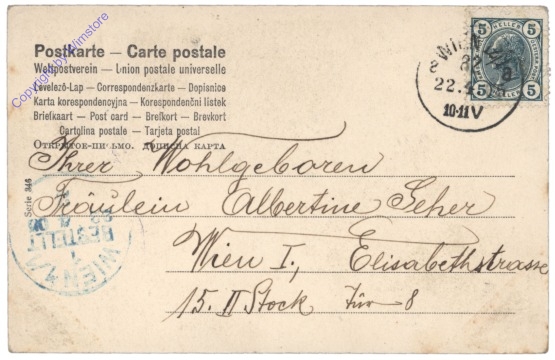 Postkarte — Carte postale
Weltpostverein — Union postale universelle
Levelező-Lap — Correspondenzkarte — Dopisnice
Karta korespondencyjna — Korespondenční listek
Briefkaart — Post card — Brefkort — Brevkort
Cartolina postale — Tarjeta postal
Открытое письмо. дописна карта
5 HELLER 5
5 5
WIEN
22.
10-11V
Ihrer Wohlgeboren
Fräulein Albertine Geher
Wien I., Elisabethstrasse
15. II Stock Tür 8
Serie 346
BESTELLT
WIEN
Copyright by Wimstore